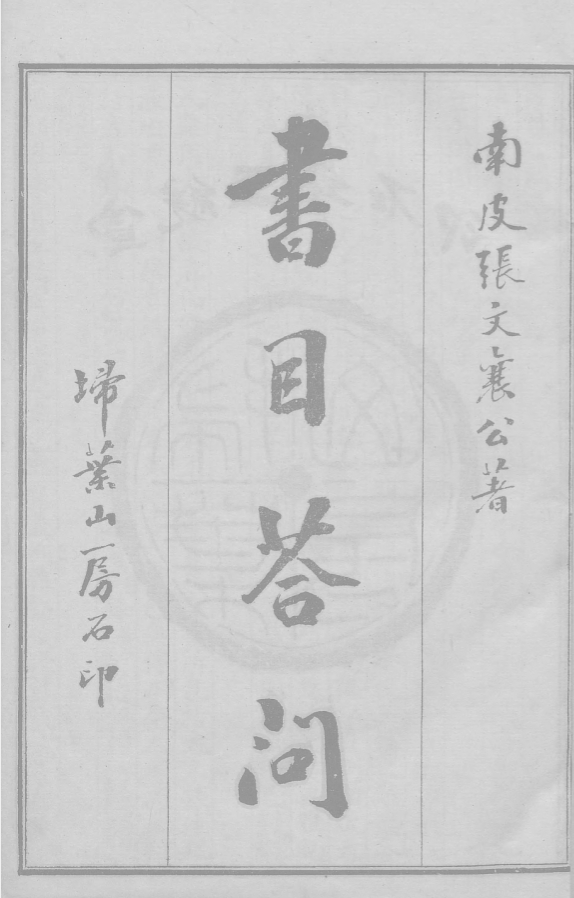 南皮張文襄公著
書目荅問
埽葉山房石印